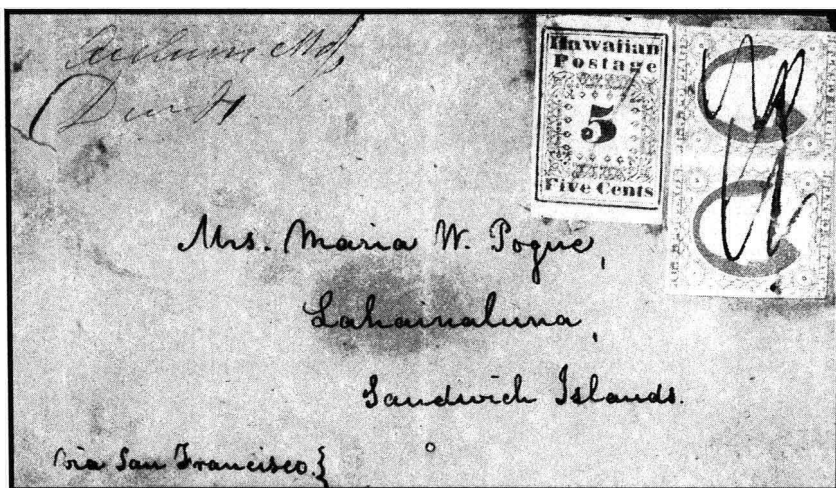 Hawaiian
Postage
5
Five Cents
Mrs. Maria W. Pogue,
Lahainaluna,
Sandwich Islands.
via San Francisco.}